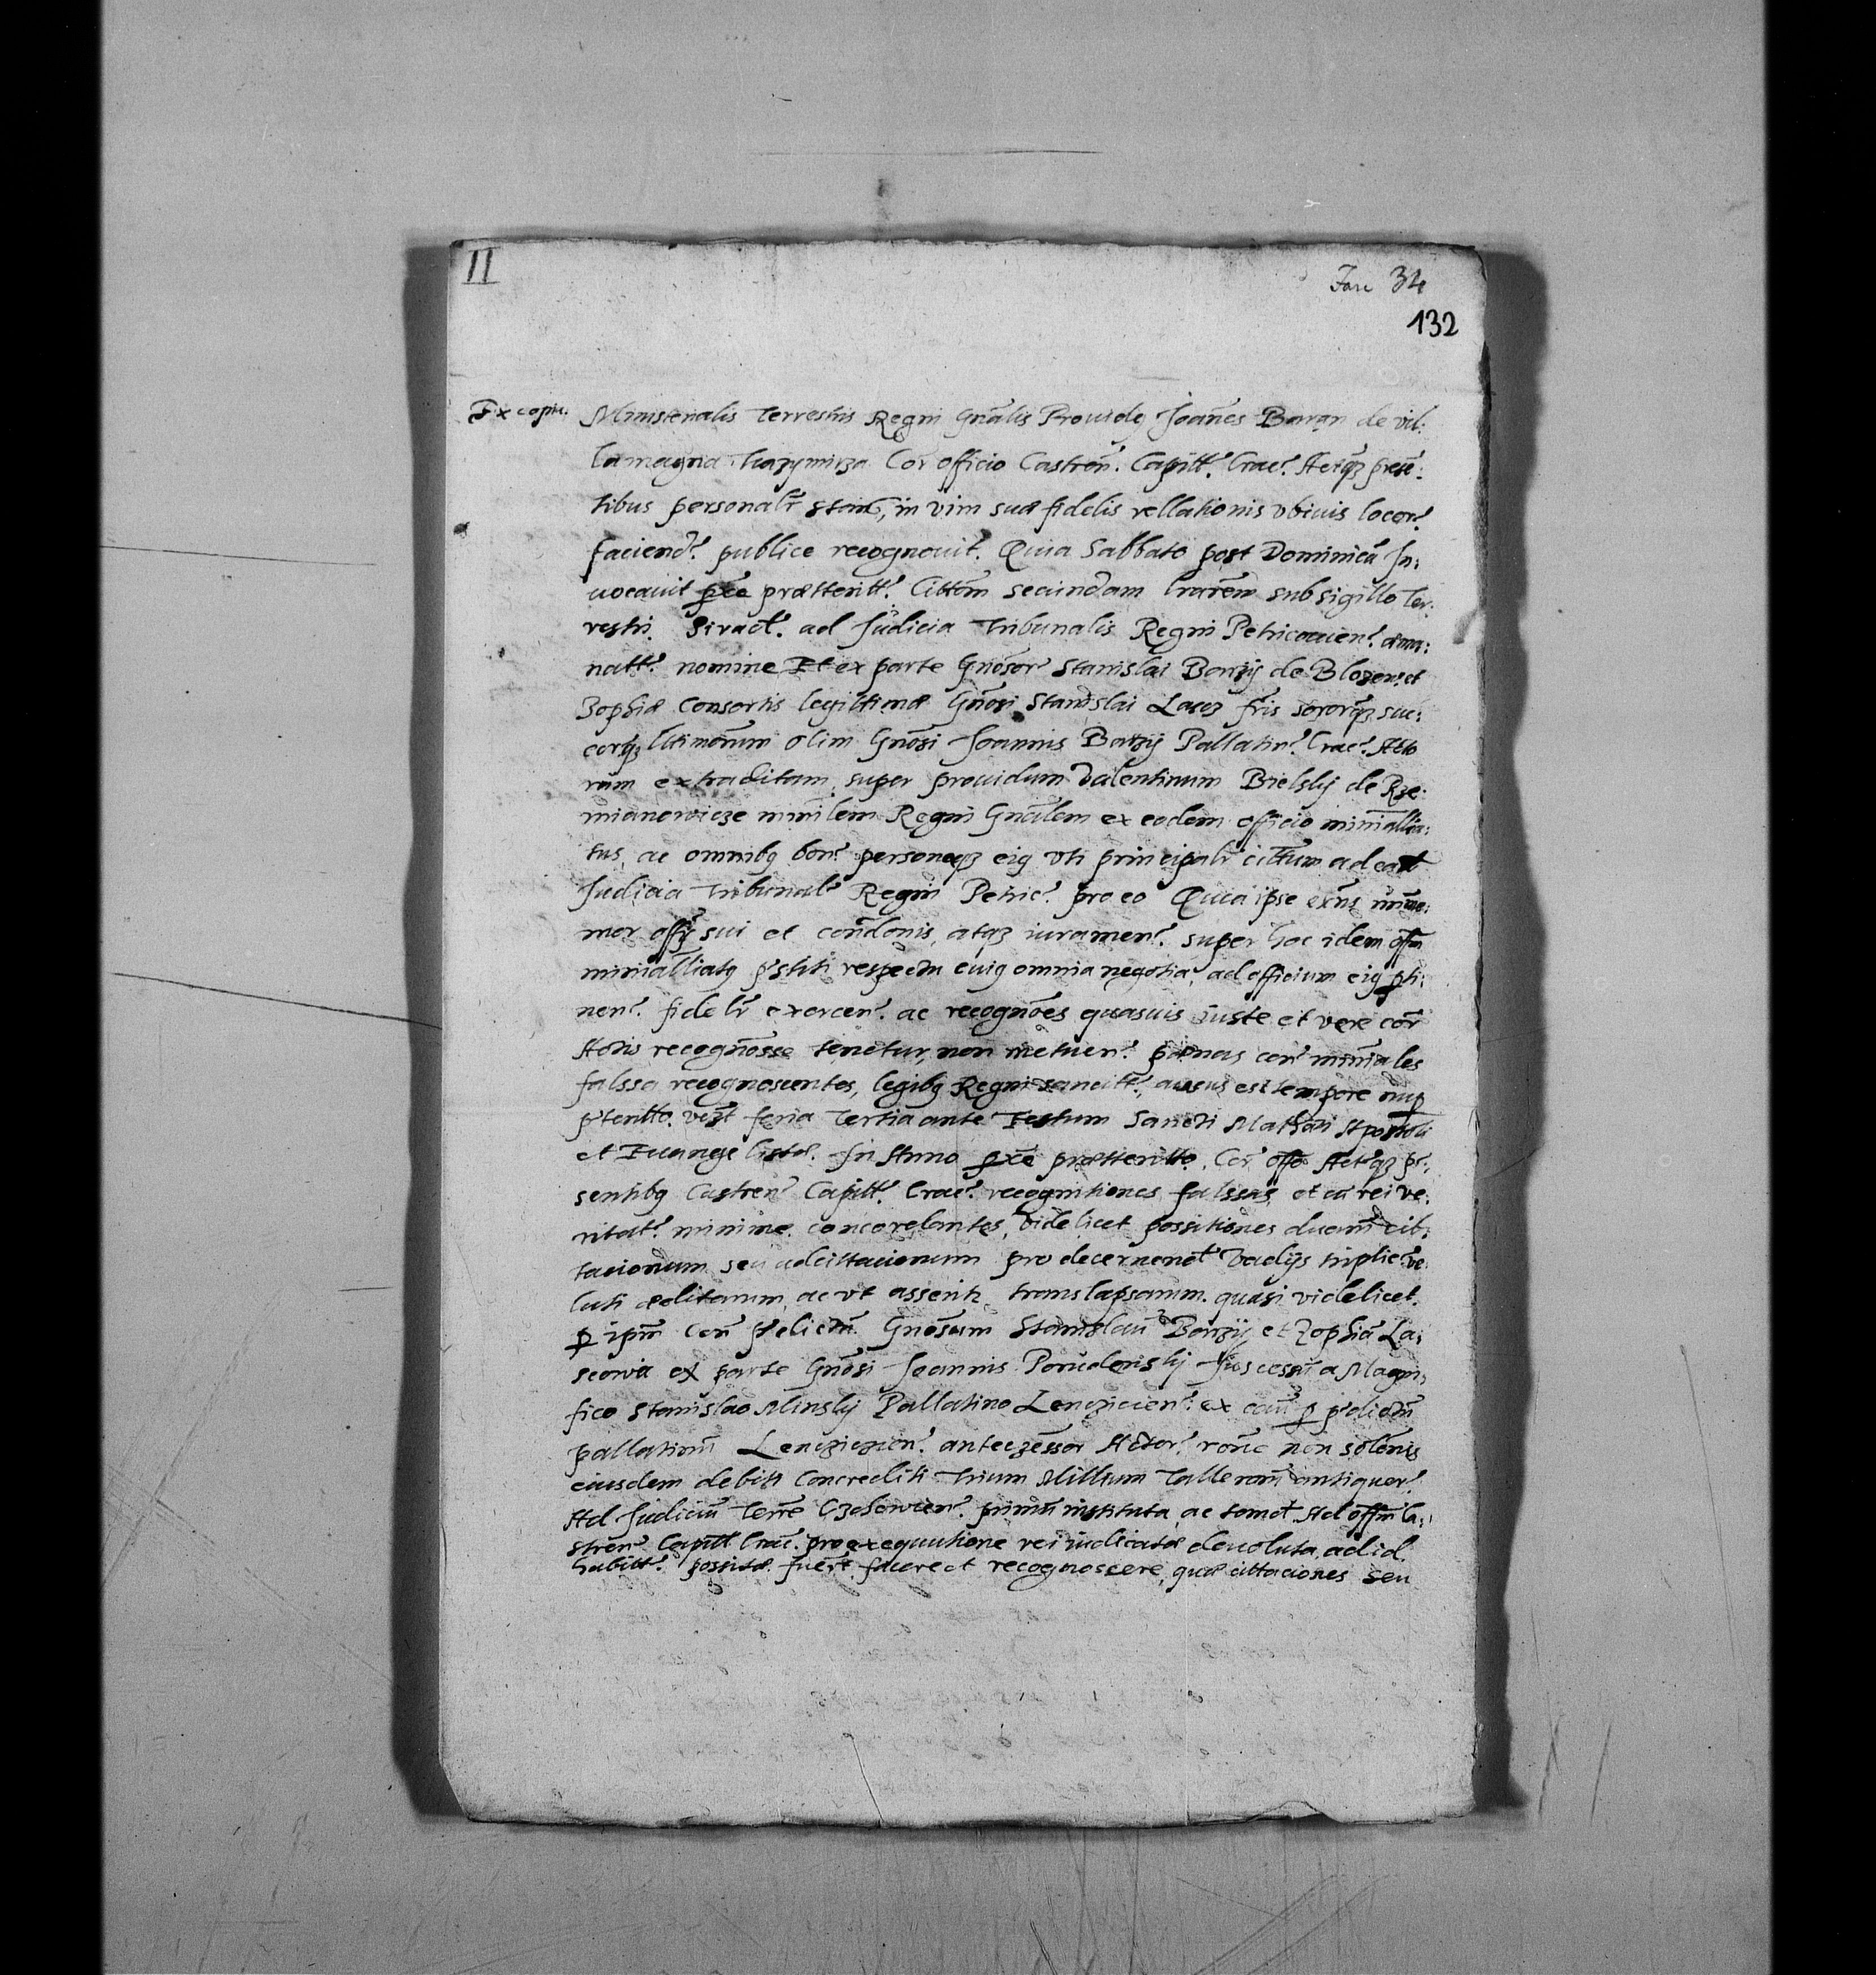 II
Fasc 34
132
Ex copia.
Ministerialis Terrestris Regni Gnalis Prouidq Joanes Baran de vil:
la magna Kazymirza Cor officio Castren. Capitt. Crac. Actisqz presen:
tibus personalr stans, in vim suæ fidelis rellationis vbiuis locor.
faciend. publice recognouit. Quia Sabbato post Dominicã In:
uocauit pxe prætteritt. Cittom secundam sub sigillo Ter:
restri Sirad. ad Judicia Tribunalis Regni Petricouien. ema:
natt. nomine Et ex parte Gnosor Stanislai Barzij de Blozew et
Zophiæ Consortis legittimæ Gnosi Stanislai Lascz fris sororqz suc:
corqz olim Gnosi Joannis Barzij Pallatin. Crac. Acto
rum extraditam, super prouidum Valentinum Bielsky de Rze:
mianowicze minlem Regni Gnalem ex eodem officio ministllia:
tus, ac omnibq bon. personeqz eiq vti principalr cittum ad ea
Judicia Tribunal. Regni Petric. pro eo Quia ipse exns imme:
mor offij sui et condonis, atqz iuramen. super hoc idem offm
ministlliatq p'stiti respectu cuiq omnia negotia, ad officium eiq pti:
nen. fidelr exercen. ac recognoes quasuis iuste et vere cor
Actis recognosse tenetur, non metuen. pœnas con ministales
falssa recognoscentes, legibq Regni sancitt. ausus est tempore nup
p'teritto. vept feria Tertia ante Festum Sancti Mathæi Apostoli
et Euangelistæ. In Anno pxe prætteritto, Cor offo Actisqz p':
sentibq Castren Capitt. Crac. recognitiones falssas, et cũ rei ve:
ritat. minime concordantes, videlicet possitiones duarũ cit:
tacionum seu adcittacionum pro decernend vadijs triplic. ve
luti editarum, ac vt asserit, translapsarum. quasi videlicet.
p ipm con p'dictũ Gnosum Stanislaũ Barzij et Zophiã La:
scowa ex parte Gnosi Joannis Porudenski Jus cessũ a Magni:
fico Stanislao Minsky Pallatino Lencicien. ex cauũ p p'dictũ
pallatinũ Lenczyczien. antecessor Actor. rone non solonis
eiusdem debiti Concrediti Trium Millium Tallerorũ antiquor.
Ad Judiciũ Terre Czchowien. primũ instituta, ac tamd. Ad offm Ca:
stren. Capitt. Crac. pro exequutione rei iudicatæ deuoluta, ad id
habitt. possitæ fuert. facere et recognoscere, quæ cittaciones seu